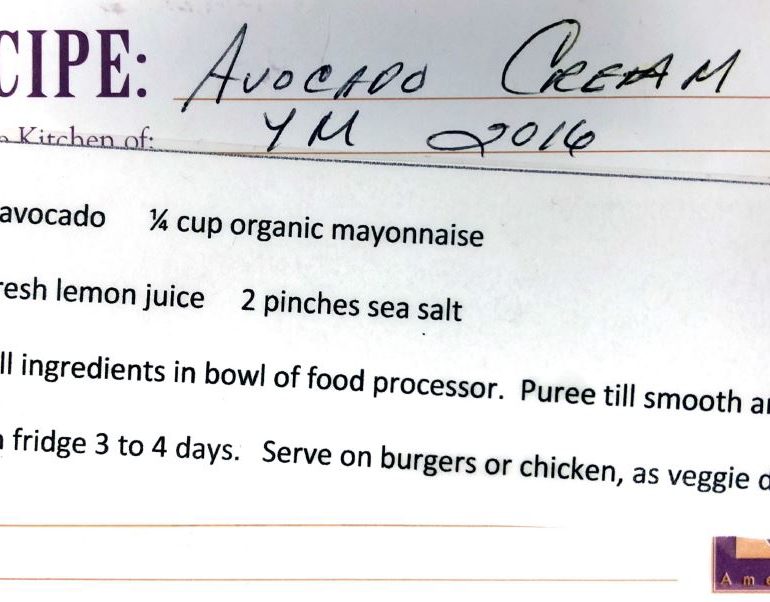 CIPE: AVOCADO CREAM
Kitchen of: YM 2016
avocado ¼ cup organic mayonnaise
resh lemon juice 2 pinches sea salt
ll ingredients in bowl of food processor. Puree till smooth a
fridge 3 to 4 days. Serve on burgers or chicken, as veggie d
Ame